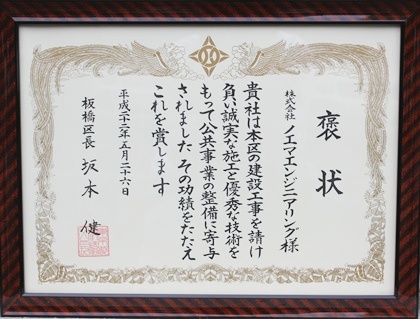 褒状
株式会社 ノエマエンジニアリング様
貴社は本区の建設工事を請け
負い誠実な施工と優秀な技術を
もって公共事業の整備に寄与
されました その功績をたたえ
これを賞します
平成二十二年五月二十六日
板橋区長 坂本 健